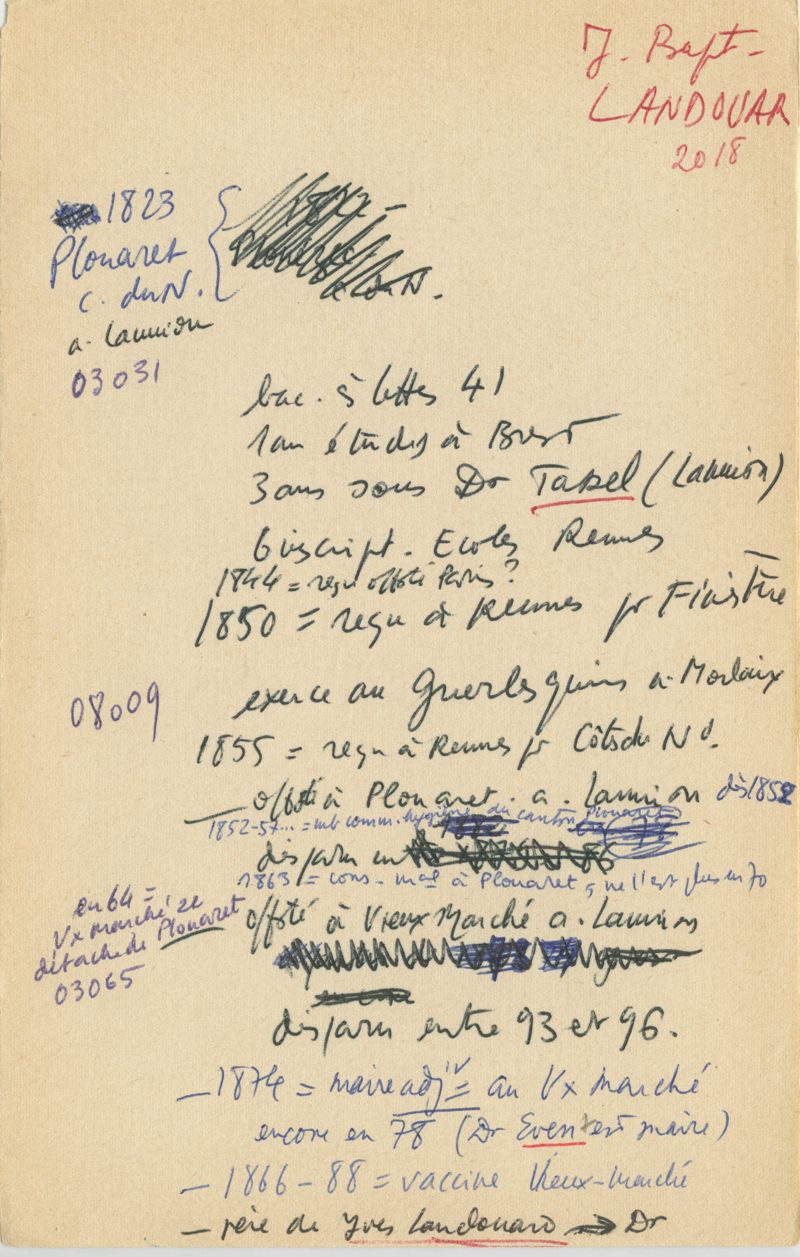 J. Bapt-
LANDOUAR
2018
1823
Plouaret
C. du N.
a. Lannion
03031
bac. ès lettes 41
1 an études à Brest
3 ans sous Dr Tassel (Lannion)
6 inscript. Ecoles Rennes
1844 = reçu offté Paris?
1850 = reçu à Rennes pr Finistère
08009
exerce au Guerlesquin a. Morlaix
1855 = reçu à Rennes pr Côts du Nd.
_ offté à Plouaret. a. Lannion dès 1852
1852-57... = mb comm. hygiène du canton Plouaret
disparu en
1863 = cons. mal à Plouaret, ne l'est plus en 70
en 64 =
Vx Marché se
détache de Plouaret
03065
offté à Vieux Marché a. Lannion
disparu entre 93 et 96.
_ 1874 = maire adjt = au Vx Marché
encore en 78 (Dr Even est maire)
_ 1866-88 = vaccine Vieux-Marché
_ père de Yves Landouard → Dr